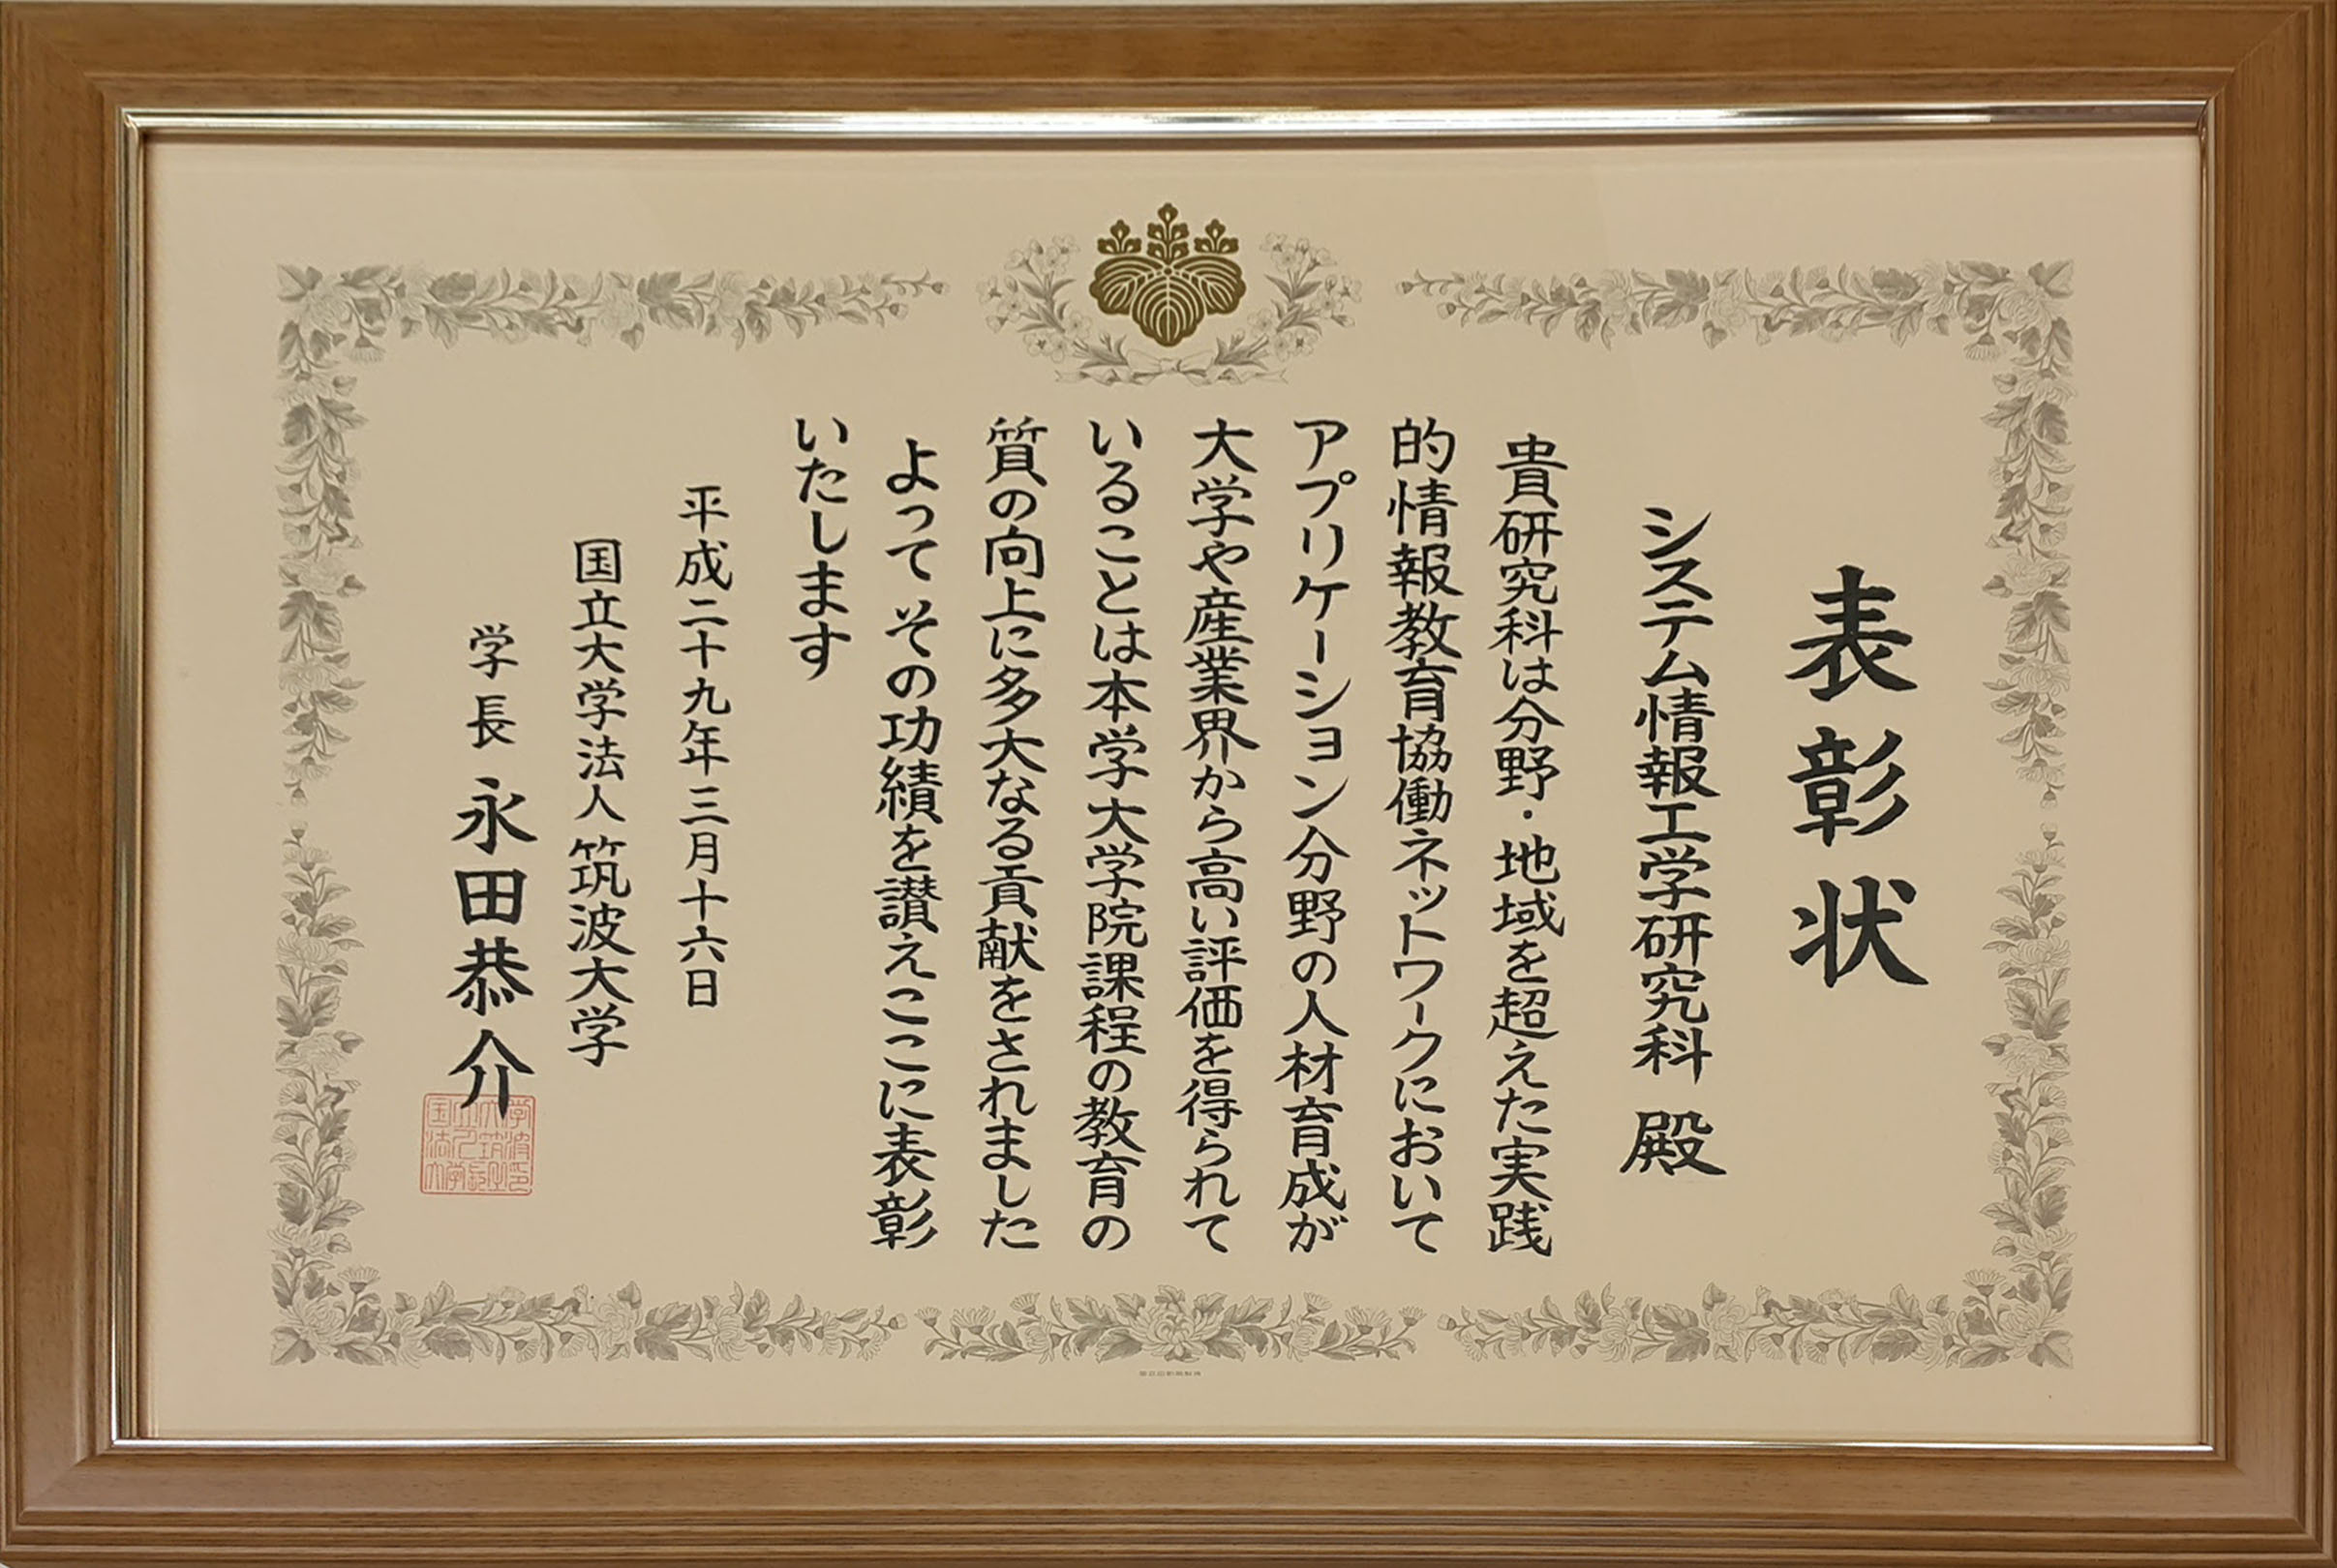 表彰状
システム情報工学研究科 殿
貴研究科は分野・地域を超えた実践
的情報教育協働ネットワークにおいて
アプリケーション分野の人材育成が
大学や産業界から高い評価を得られて
いることは本学大学院課程の教育の
質の向上に多大なる貢献をされました
よって その功績を讃えここに表彰
いたします
平成二十九年三月十六日
国立大学法人 筑波大学
学長 永田恭介